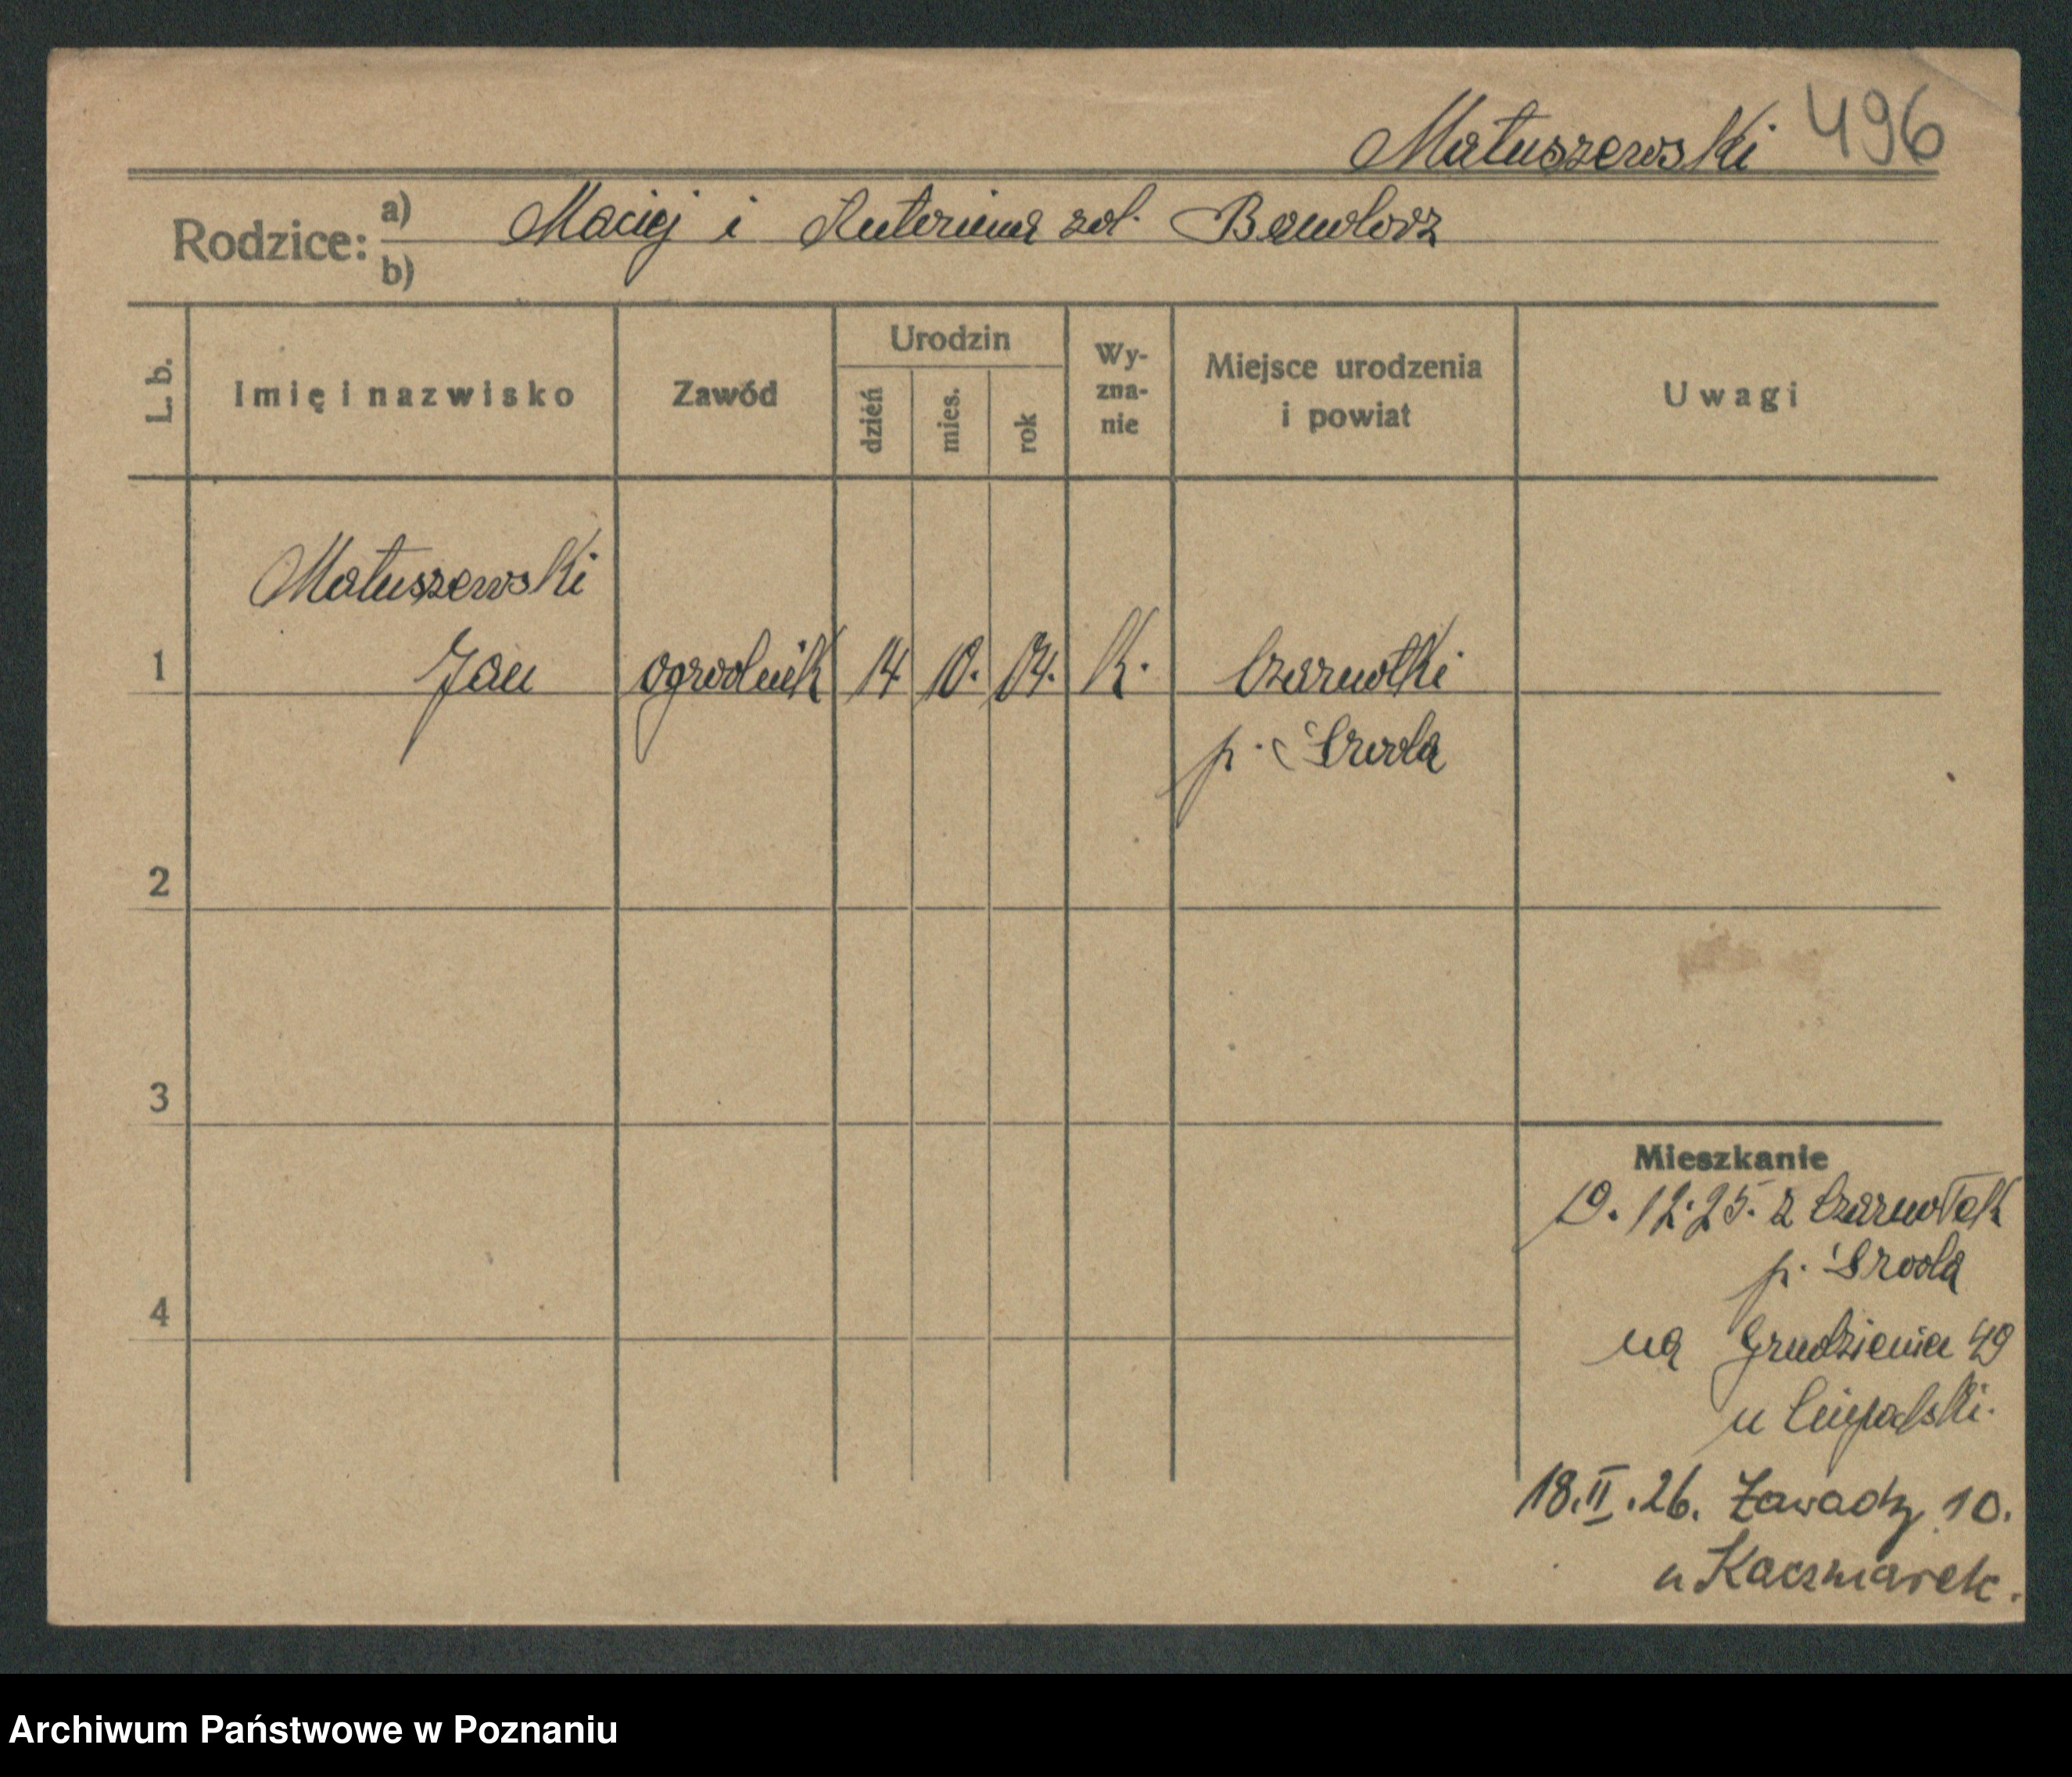 Matuszewski 496
Rodzice: a) Maciej i Antonina zd.
b)
L. b. Imię i nazwisko Zawód Urodzin dzień mies. rok Wy-zna-nie Miejsce urodzenia i powiat Uwagi
Matuszewski
1 Jan ogrodnik 14 10. 04. K. Czarnotki
p. Środa
2
3
Mieszkanie
19. 12. 25. z Czarnotek
p. Środa
4
na Grudzieniec 49
u
18.II.26. Zawady 10.
u Kaczmarek.
Archiwum Państwowe w Poznaniu